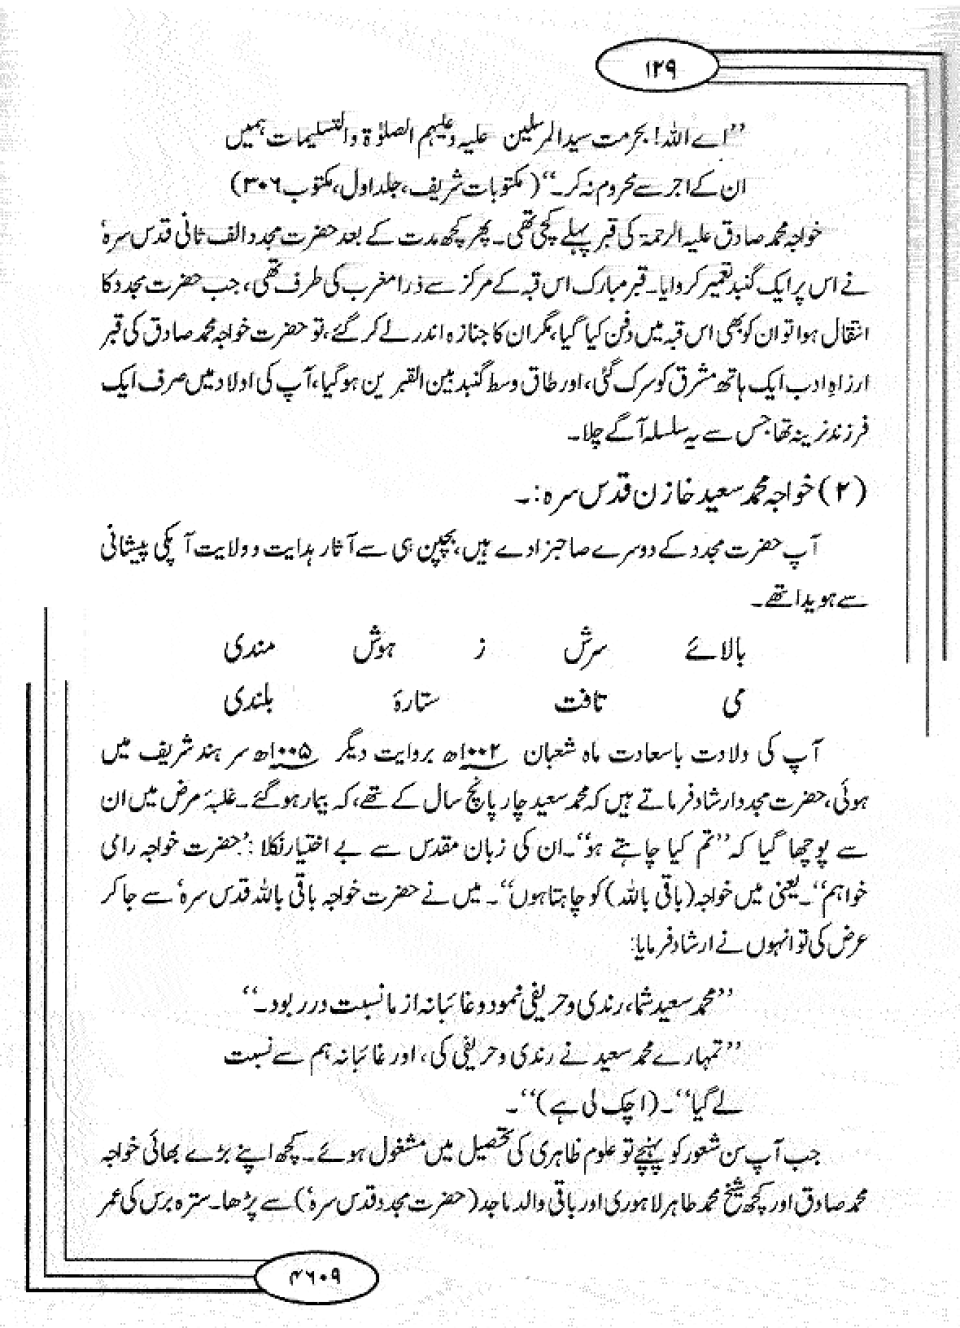 ۱۲۹
’’اے اللہ! بحرمت سید المرسلین علیہ وعلیہم الصلوٰۃ والتسلیمات ہمیں
ان کے اجر سے محروم نہ کر۔‘‘ (مکتوبات شریف، جلد اول، مکتوب ۳۰۶)
خواجہ محمد صادق علیہ الرحمۃ کی قبر پہلے کچی تھی۔ پھر کچھ مدت کے بعد حضرت مجدد الف ثانی قدس سرہٗ
نے اس پر ایک گنبد تعمیر کروایا۔ قبر مبارک اس قبہ کے مرکز سے ذرا مغرب کی طرف تھی، جب حضرت مجدد کا
انتقال ہوا تو ان کو بھی اس قبہ میں دفن کیا گیا، مگر ان کا جنازہ اندر لے کر گئے، تو حضرت خواجہ محمد صادق کی قبر
ارزاہِ ادب ایک ہاتھ مشرق کو سرک گئی، اور طاق وسط گنبد بین القبرین ہو گیا، آپ کی اولاد میں صرف ایک
فرزند نرینہ تھا جس سے یہ سلسلہ آگے چلا۔
(۲) خواجہ محمد سعید خازن قدس سرہ:۔
آپ حضرت مجدد کے دوسرے صاحبزادے ہیں، بچپن ہی سے آثار ہدایت و ولایت آپکی پیشانی
سے ہویدا تھے۔
بالائے سرش ز ہوش مندی
می تافت ستارۂ بلندی
آپ کی ولادت باسعادت ماہ شعبان ۱۰۰۲ھ بروایت دیگر ۱۰۰۵ھ سرہند شریف میں
ہوئی، حضرت مجدد ارشاد فرماتے ہیں کہ محمد سعید چار پانچ سال کے تھے، کہ بیمار ہو گئے۔ غلبۂ مرض میں ان
سے پوچھا گیا کہ ’’تم کیا چاہتے ہو‘‘۔ ان کی زبان مقدس سے بے اختیار نکلا: ’’حضرت خواجہ رامی
خواہم‘‘۔ یعنی میں خواجہ (باقی باللہ) کو چاہتا ہوں‘‘۔ میں نے حضرت خواجہ باقی باللہ قدس سرہٗ سے جا کر
عرض کی تو انہوں نے ارشاد فرمایا:
’’محمد سعید شما، رندی و حریفی نمود و غائبانہ از ما نسبت در ربود۔‘‘
’’تمہارے محمد سعید نے رندی و حریفی کی، اور غائبانہ ہم سے نسبت
لے گیا‘‘۔ (اچک لی ہے)‘‘۔
جب آپ سن شعور کو پہنچے تو علوم ظاہری کی تحصیل میں مشغول ہوئے۔ کچھ اپنے بڑے بھائی خواجہ
محمد صادق اور کچھ شیخ محمد طاہر لاہوری اور باقی والد ماجد (حضرت مجدد قدس سرہٗ) سے پڑھا۔ سترہ برس کی عمر
۴۶۰۹